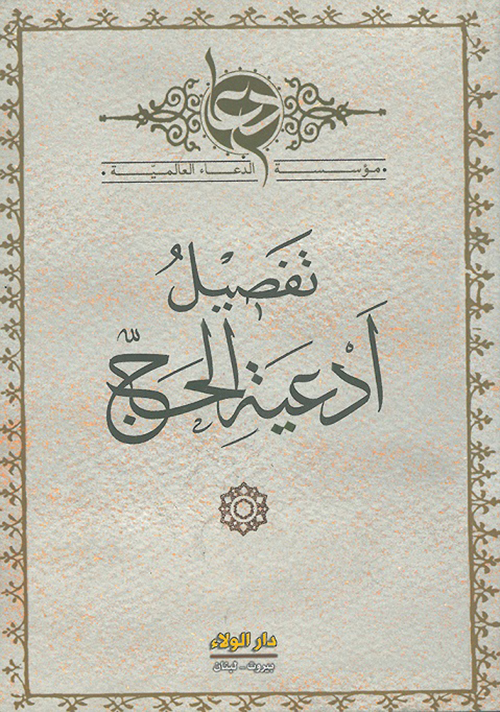 دعاء
• مؤسسة الدعاء العالميّة •
تَفَصْيلُ
أَدْعيَةِ الحَجّ
دار الولاء
بيروت - لبنان